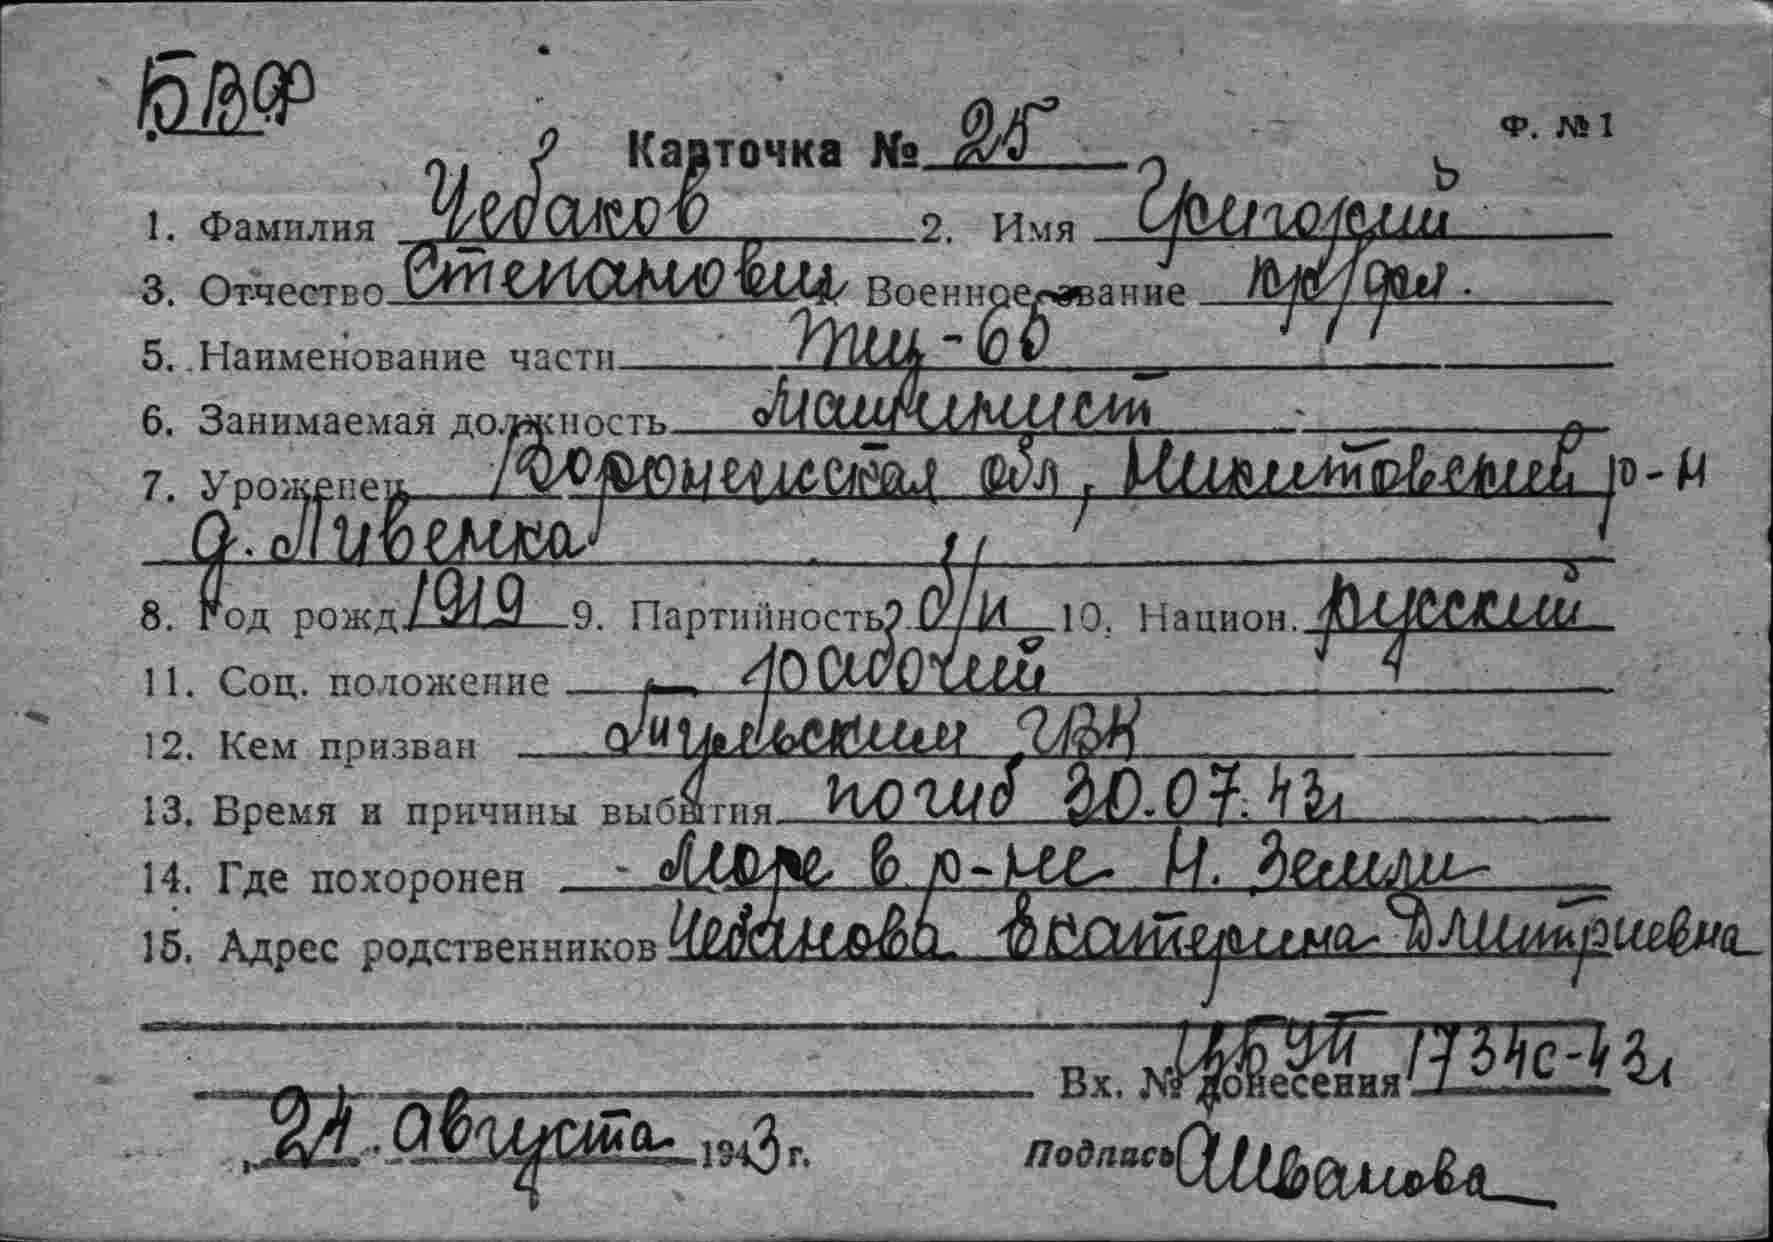 БВФ
Ф. №1
Карточка № 25
1. Фамилия Чебаков 2. Имя Григорий
3. Отчество Степанович Военное звание кр/фл.
5. Наименование части тщ-65
6. Занимаемая должность машинист
7. Уроженец Воронежская обл, Никитовский р-н
д. Ливенка
8. Год рожд. 1919 9. Партийность б/п 10. Национ. русский
11. Соц. положение рабочий
12. Кем призван ГВК
13. Время и причины выбытия погиб 30.07.43г
14. Где похоронен Море в р-не Н. Земли
15. Адрес родственников Чебакова Екатерина Дмитриевна
Вх. № донесения 1734с-43г
24. августа 1943 г.
Подпись АИванова